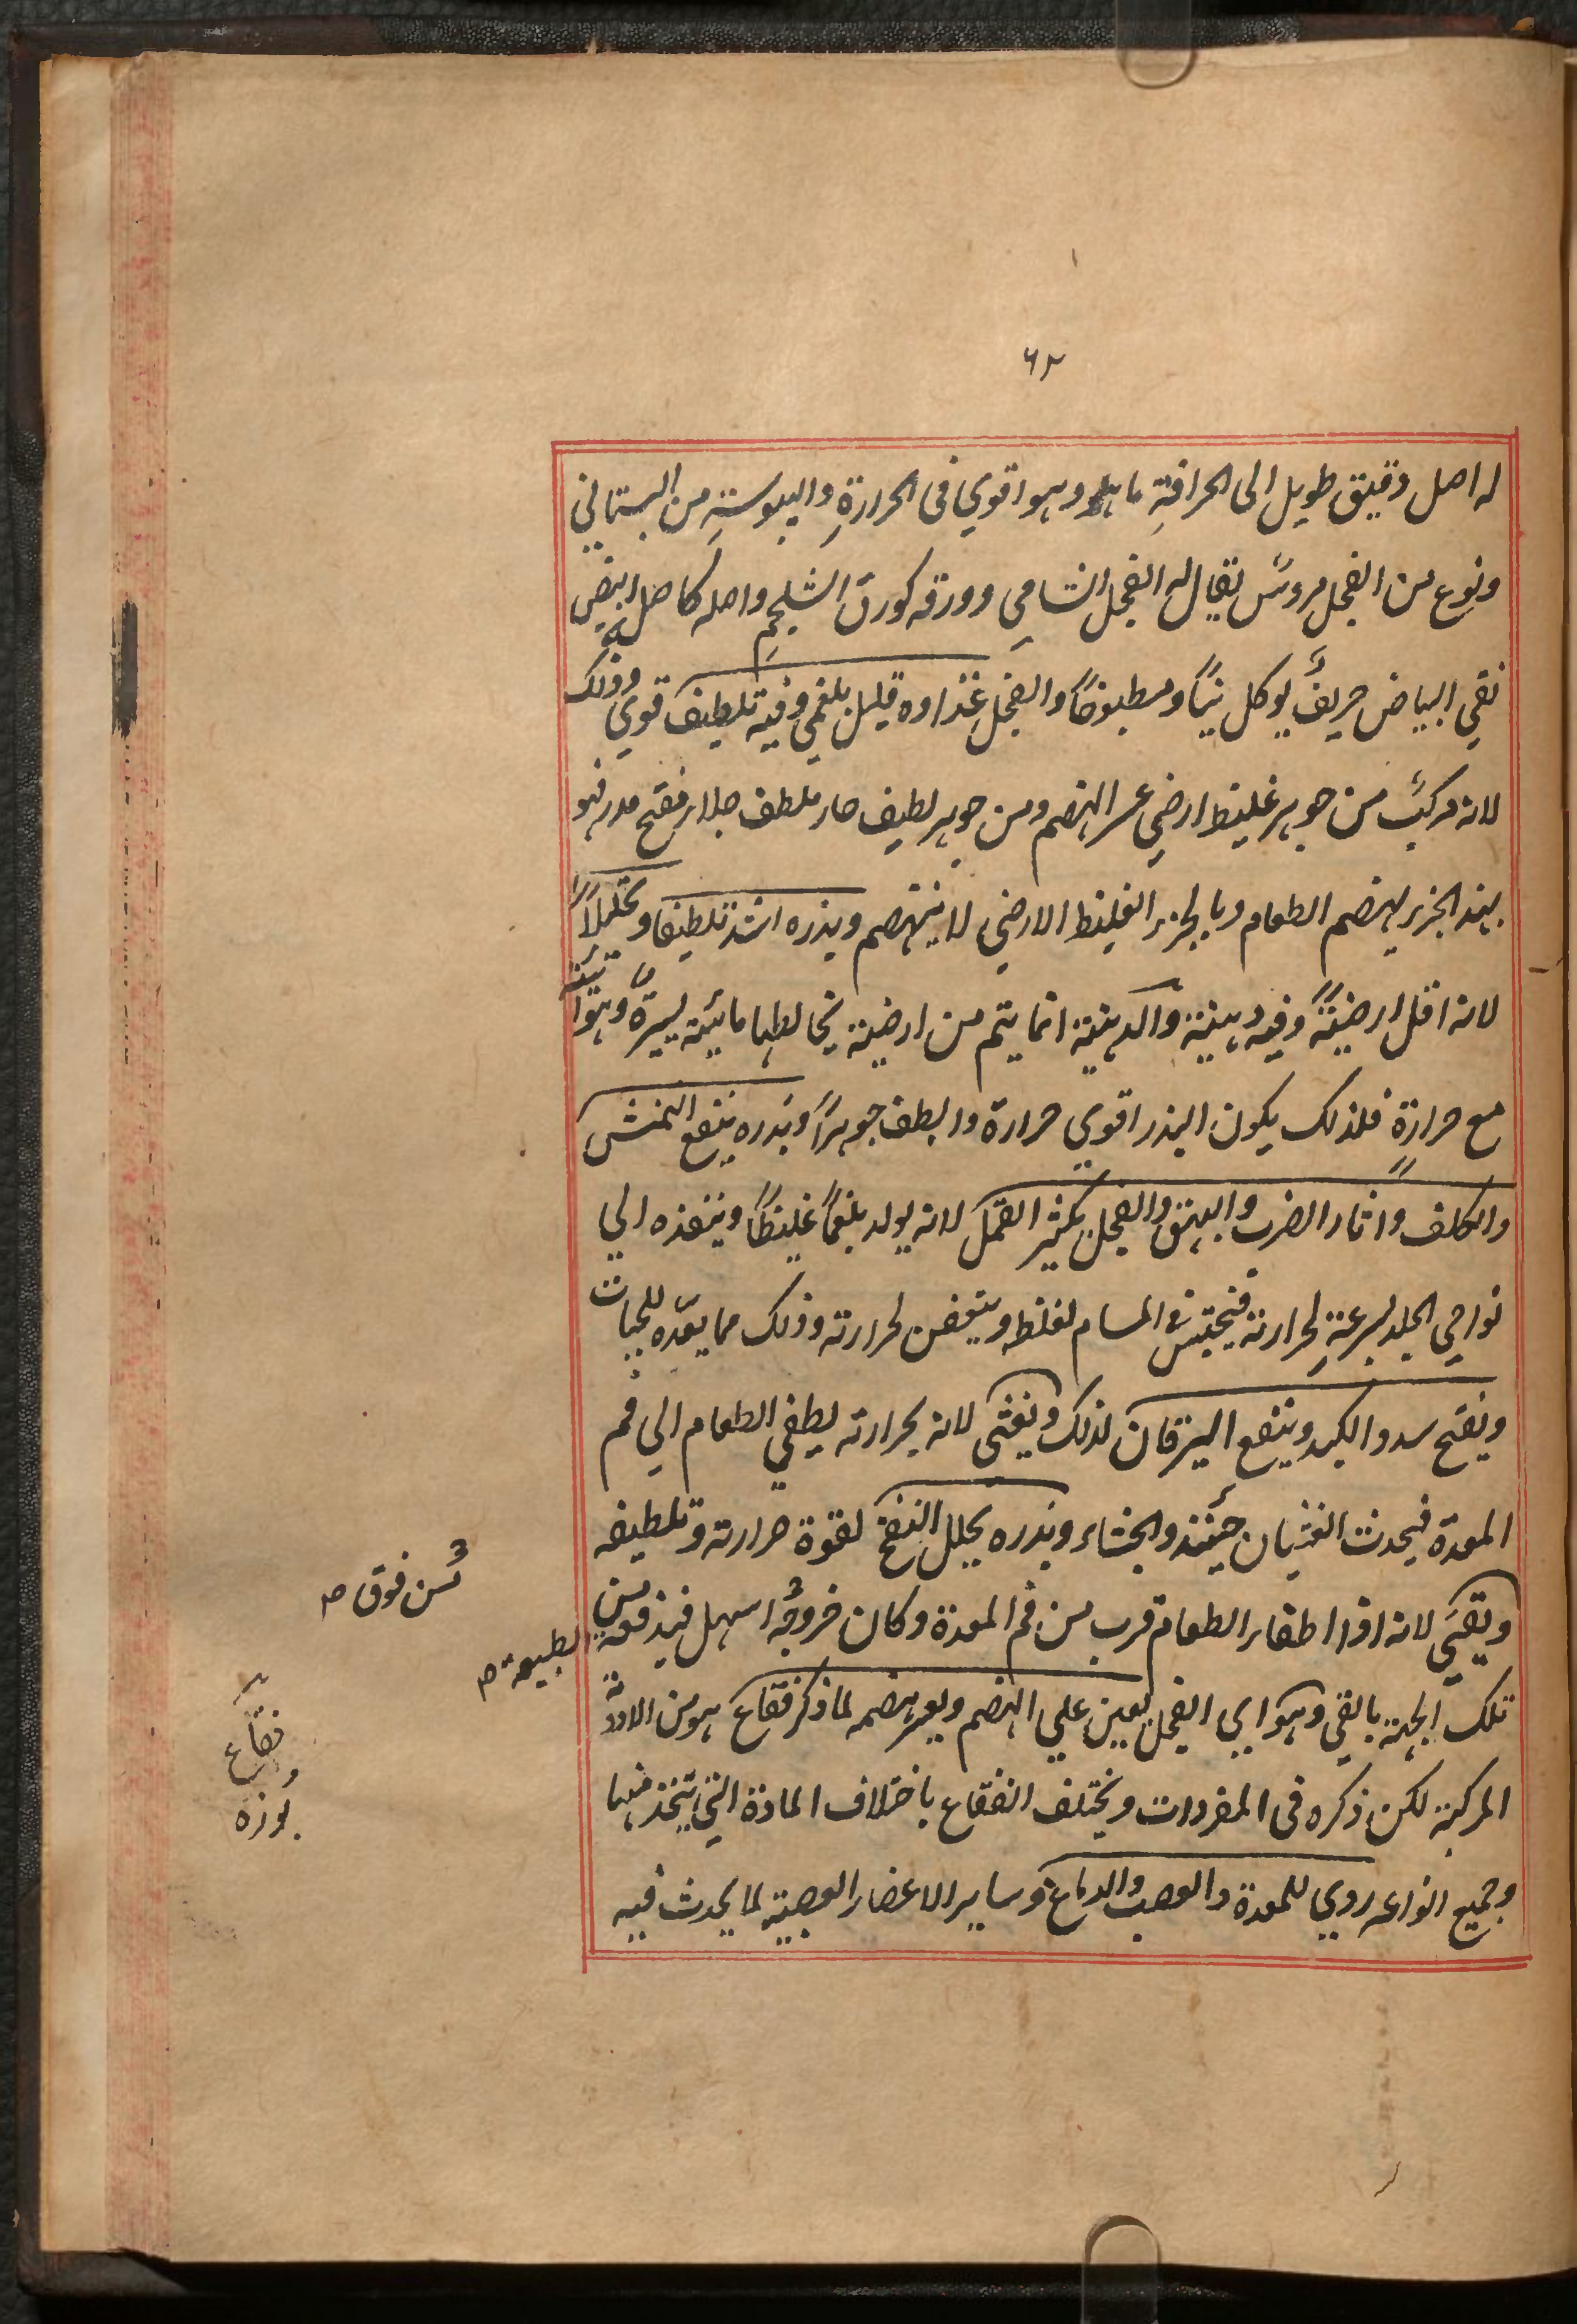 ٦٢
له اصل دقيق طويل الى الحرافةِ ما هو وهو اقوي فى الحرارةِ واليبوسةِ من البستاني
ونوع من الفجل مروس يقال له الفجل الشامي وورقه كورق الشلجمِ واصله كاصله ابيض
نقي البياض حريف يوكل نياً ومطبوخاً والفجل غذاوه قليل بلغمي وفيه تلطيف قوي وذلك
لانه مركب من جوهر غليظ ارضي عسر الهضم ومن جوهر لطيف حار ملطف جلاء مفتح مدر فهو
بهذ الجزء يهضم الطعام وبالجزء الغليظ الارضي لا ينهضم وبذره اشد تلطيفا وتحليلاً
لانه اقل ارضيةً وفيه دهنية والدهنية انما يتم من ارضية يخالطها مائية يسيرة وهوائية
مع حرارة فلذلك يكون البذر اقوي حرارة والطف جوهراً وبذره ينفع النمش
والكلف واثار الضرب والبهق والفجل يكثر القمل لانه يولد بلغماً غليظاً وينفذه الي
نواحي الجلد بسرعةٍ لحرارته فيحتبس فى المسام لغلظه ويتعفن لحرارته وذلك مما يعده للحيات
ويفتح سدد الكبد وينفع اليرقان لذلك ويغثى لانه بحرارته يطفي الطعام الي فم
المعدة فيحدث الغثيان حينئذ والجشاء وبذره يحلل النفخ لقوة حرارته وتلطيفه
ويقيَي لانه اذا اطفا الطعام قرب من فم المعدة وكان خروجُه اسهل فيدفعه من
تلك الجهة بالقي وهو اي الفجل يعين علي الهضم ويعسر هضمه لما ذكر فقاع هو من الادوية
المركبة لكن ذكره فى المفردات ويختلف الفقاع باختلاف المادة التي يتخذ منها
وجميع انواعه ردي للمعدة والعصب والدماغ وساير الاعضاء العصبية لما يحدث فيه
من فوق ص
الطبيعة ص
فقاع
بوزه